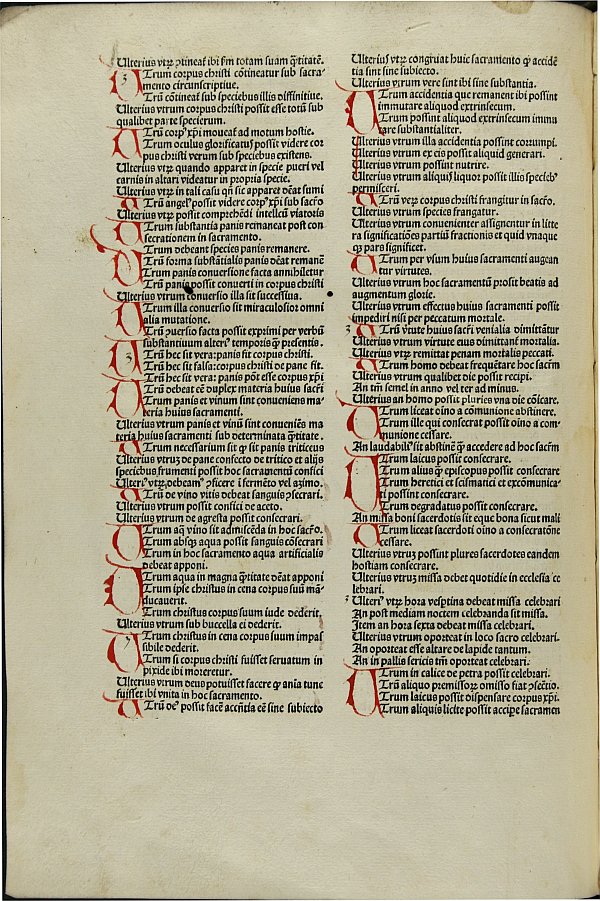 Ulterius vtrꝫ ꝯtineat̃ ibi ẜm totam suam q̃titatẽ.
Utrum corpus christi cõtineatur sub sacra-
mento circunscriptiue.
Trũ cõtineat̃ sub speciebus illis diffinitiue.
Ulterius vtrum corpus christi possit esse totũ sub
qualibet parte specierum.
UTrũ corpꝰ xp̃i moueat̃ ad motum hostie.
Trum oculus glorificatꝰ possit videre cor
pus christi verum sub speciebus existens.
Ulterius vtrꝫ quando apparet in specie pueri vel
carnis in altari videatur in propria specie.
Ulterius vtrꝫ in tali casu qñ sic apparet dẽat sumi
UTrũ angelꝰ possit videre corpꝰ xp̃i sub sacr̃o
Ulterius vtrꝫ possit comprehẽdi intellcũ viatoris
UTrum substantia panis remaneat post con
secrationem in sacramento.
UTrum debeant species panis remanere.
Trũ forma substãtialis panis dẽat remanẽ
Trum panis conuersione facta annihiletur
Trũ panis possit conuerti in corpus christi
Ulterius vtrum conuersio illa sit successiua.
UTrum illa conuersio sit miraculosior omni
alia mutatione.
UTrũ ꝯuersio facta possit exprimi per verbũ
substantiuum alteriꝰ temporis q̃ presentis.
UTrũ hec sit vera: panis sit corpus christi.
Trũ hec sit falsa: corpus christi de pane fit.
UTrũ hec sit vera: panis põt esse corpus xp̃i
UTrũ debeat eẽ duplex materia huius sacr̃i
Trum panis et vinum sint conueniens ma-
teria huius sacramenti.
Ulterius vtrum panis et vinũ sint conueniẽs ma
teria huius sacramenti sub determinata q̃titate.
UTrum necessarium sit ꝙ sit panis triticeus
Ulterius vtruꝫ de pane confecto de tritico et alijs
speciebus frumenti possit hoc sacramentũ confici
Ulteriꝰ vtrꝫ debeamꝰ ꝯficere ĩ fermẽto vel azimo.
UTrũ de vino vitis debeat sanguis ꝯsecrari.
Ulterius vtrum possit confici de aceto.
Ulterius vtrum de agresta possit consecrari.
UTrum aq̃ vino sit admiscẽda in hoc sacr̃o.
Trum absqꝫ aqua possit sanguis cõsecrari
Trum in hoc sacramento aqua artificialis
debeat apponi.
UTrum aqua in magna q̃titate dẽat apponi
Trum ipse christus in cena corpus suũ mã-
ducauerit.
Trum christus corpus suum iude dederit.
Ulterius vtrum sub buccella ei dederit.
UTrum christus in cena corpus suum impas
sibile dederit.
UTrum si corpus christi fuisset seruatum in
pixide ibi moreretur.
Ulterius vtrum deus potuisset facere ꝙ anĩa tunc
fuisset ibi vnita in hoc sacramento.
UTrũ deꝰ possit facẽ accñtia eẽ sine subiecto
Ulteriꝰ vtrꝫ congruat huic sacramento ꝙ accidẽ
tia sint sine subiecto.
Ulterius vtrum vere sint ibi sine substantia.
UTrum accidentia que remanent ibi possint
immutare aliquod extrinsecum.
UTrum possint aliquod extrinsecum immu
tare substantialiter.
Ulterius vtrum illa accidentia possint corrumpi.
Ulterius vtrum ex eis possit aliquid generari.
Ulterius vtrum possint nutrire.
Ulterius vtrum aliquis liquor possit illis specieb̃
permisceri.
UTrũ verꝫ corpus christi frangitur in sacr̃o.
Ulterius vtrum species frangatur.
Ulterius vtrum conuenienter assignentur in litte
ra significatiões partiũ fractionis et quid vnaque
qꝫ pars significet.
UTrum per vsum huius sacramenti augean
tur virtutes.
Ulterius vtrum hoc sacramentũ prosit beatis ad
augmentum glorie.
Ulterius vtrum effectus huius sacramenti possit
impediri nisi per peccatum mortale.
UTrũ v̓tute huius sacr̃i venialia dimittãtur
Ulterius vtrum virtute eius dimittant̃ mortalia.
Ulterius vtrꝫ remittat penam mortalis peccati.
UTrum homo debeat frequẽtare hoc sacr̃m
Ulterius vtrum qualibet die possit recipi.
An tm̃ semel in anno vel ter ad minus.
Ulterius an homo possit pluries vna die cõicare.
UTrum liceat oĩno a cõmunione abstinere.
Trum ille qui consecrat possit oĩno a com-
munione cessare.
An laudabiliꝰ sit abstinẽ q̃ accedere ad hoc sacr̃m
UTrum laicus possit consecrare.
Trum alius q̃ episcopus possit consecrare
Trum heretici et scismatici et excõmunica-
ti possint consecrare.
Trum degradatus possit consecrare.
An missa boni sacerdotis sit eque bona sicut mali
UTrum liceat sacerdoti oĩno a consecratõne
cessare.
Ulterius vtruꝫ possint plures sacerdotes eandem
hostiam consecrare.
Ulterius vtruꝫ missa debet quotidie in ecclesia ce
lebrari.
Ulteriꝰ vtrꝫ hora vesp̃tina debeat missa celebrari
An post mediam noctem celebranda sit missa.
Item an hora sexta debeat missa celebrari.
Ulterius vtrum oporteat in loco sacro celebrari.
An oporteat esse altare de lapide tantum.
An in pallis sericis tm̃ oporteat celebrari.
UTrum in calice de petra possit celebrari.
Trũ aliquo premissorꝫ omisso fiat ꝯsectio.
Trum laicus possit dispensare corpus xp̃i.
Trum aliquis licite possit accipe̓ sacramen